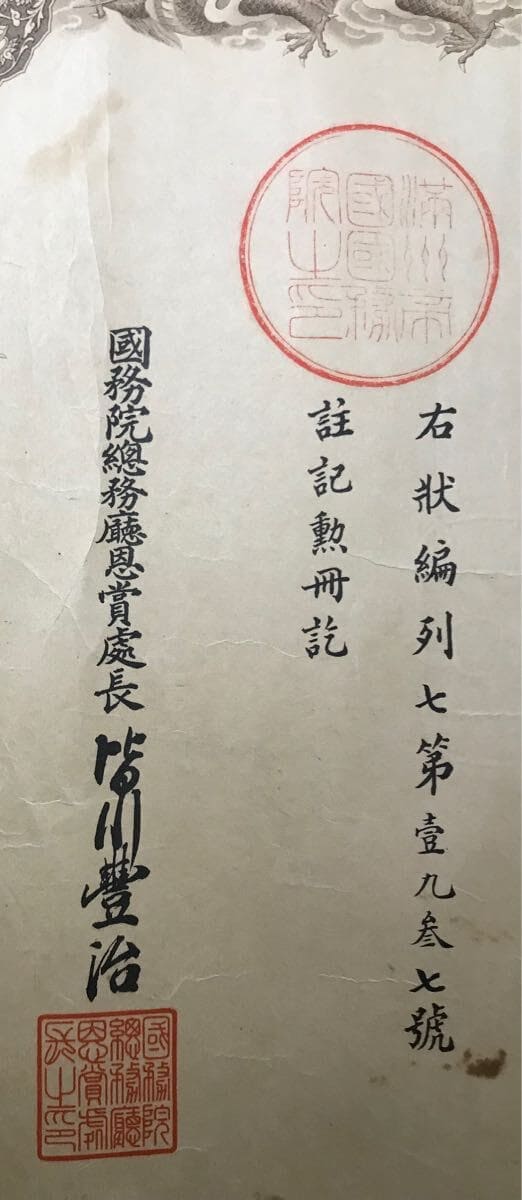 滿洲帝
國國務
院之印
右狀編列七第壹九叁七號
註記勲冊訖
國務院總務廳恩賞處長 皆川豐治
國務院
總務廳
恩賞處
長之印